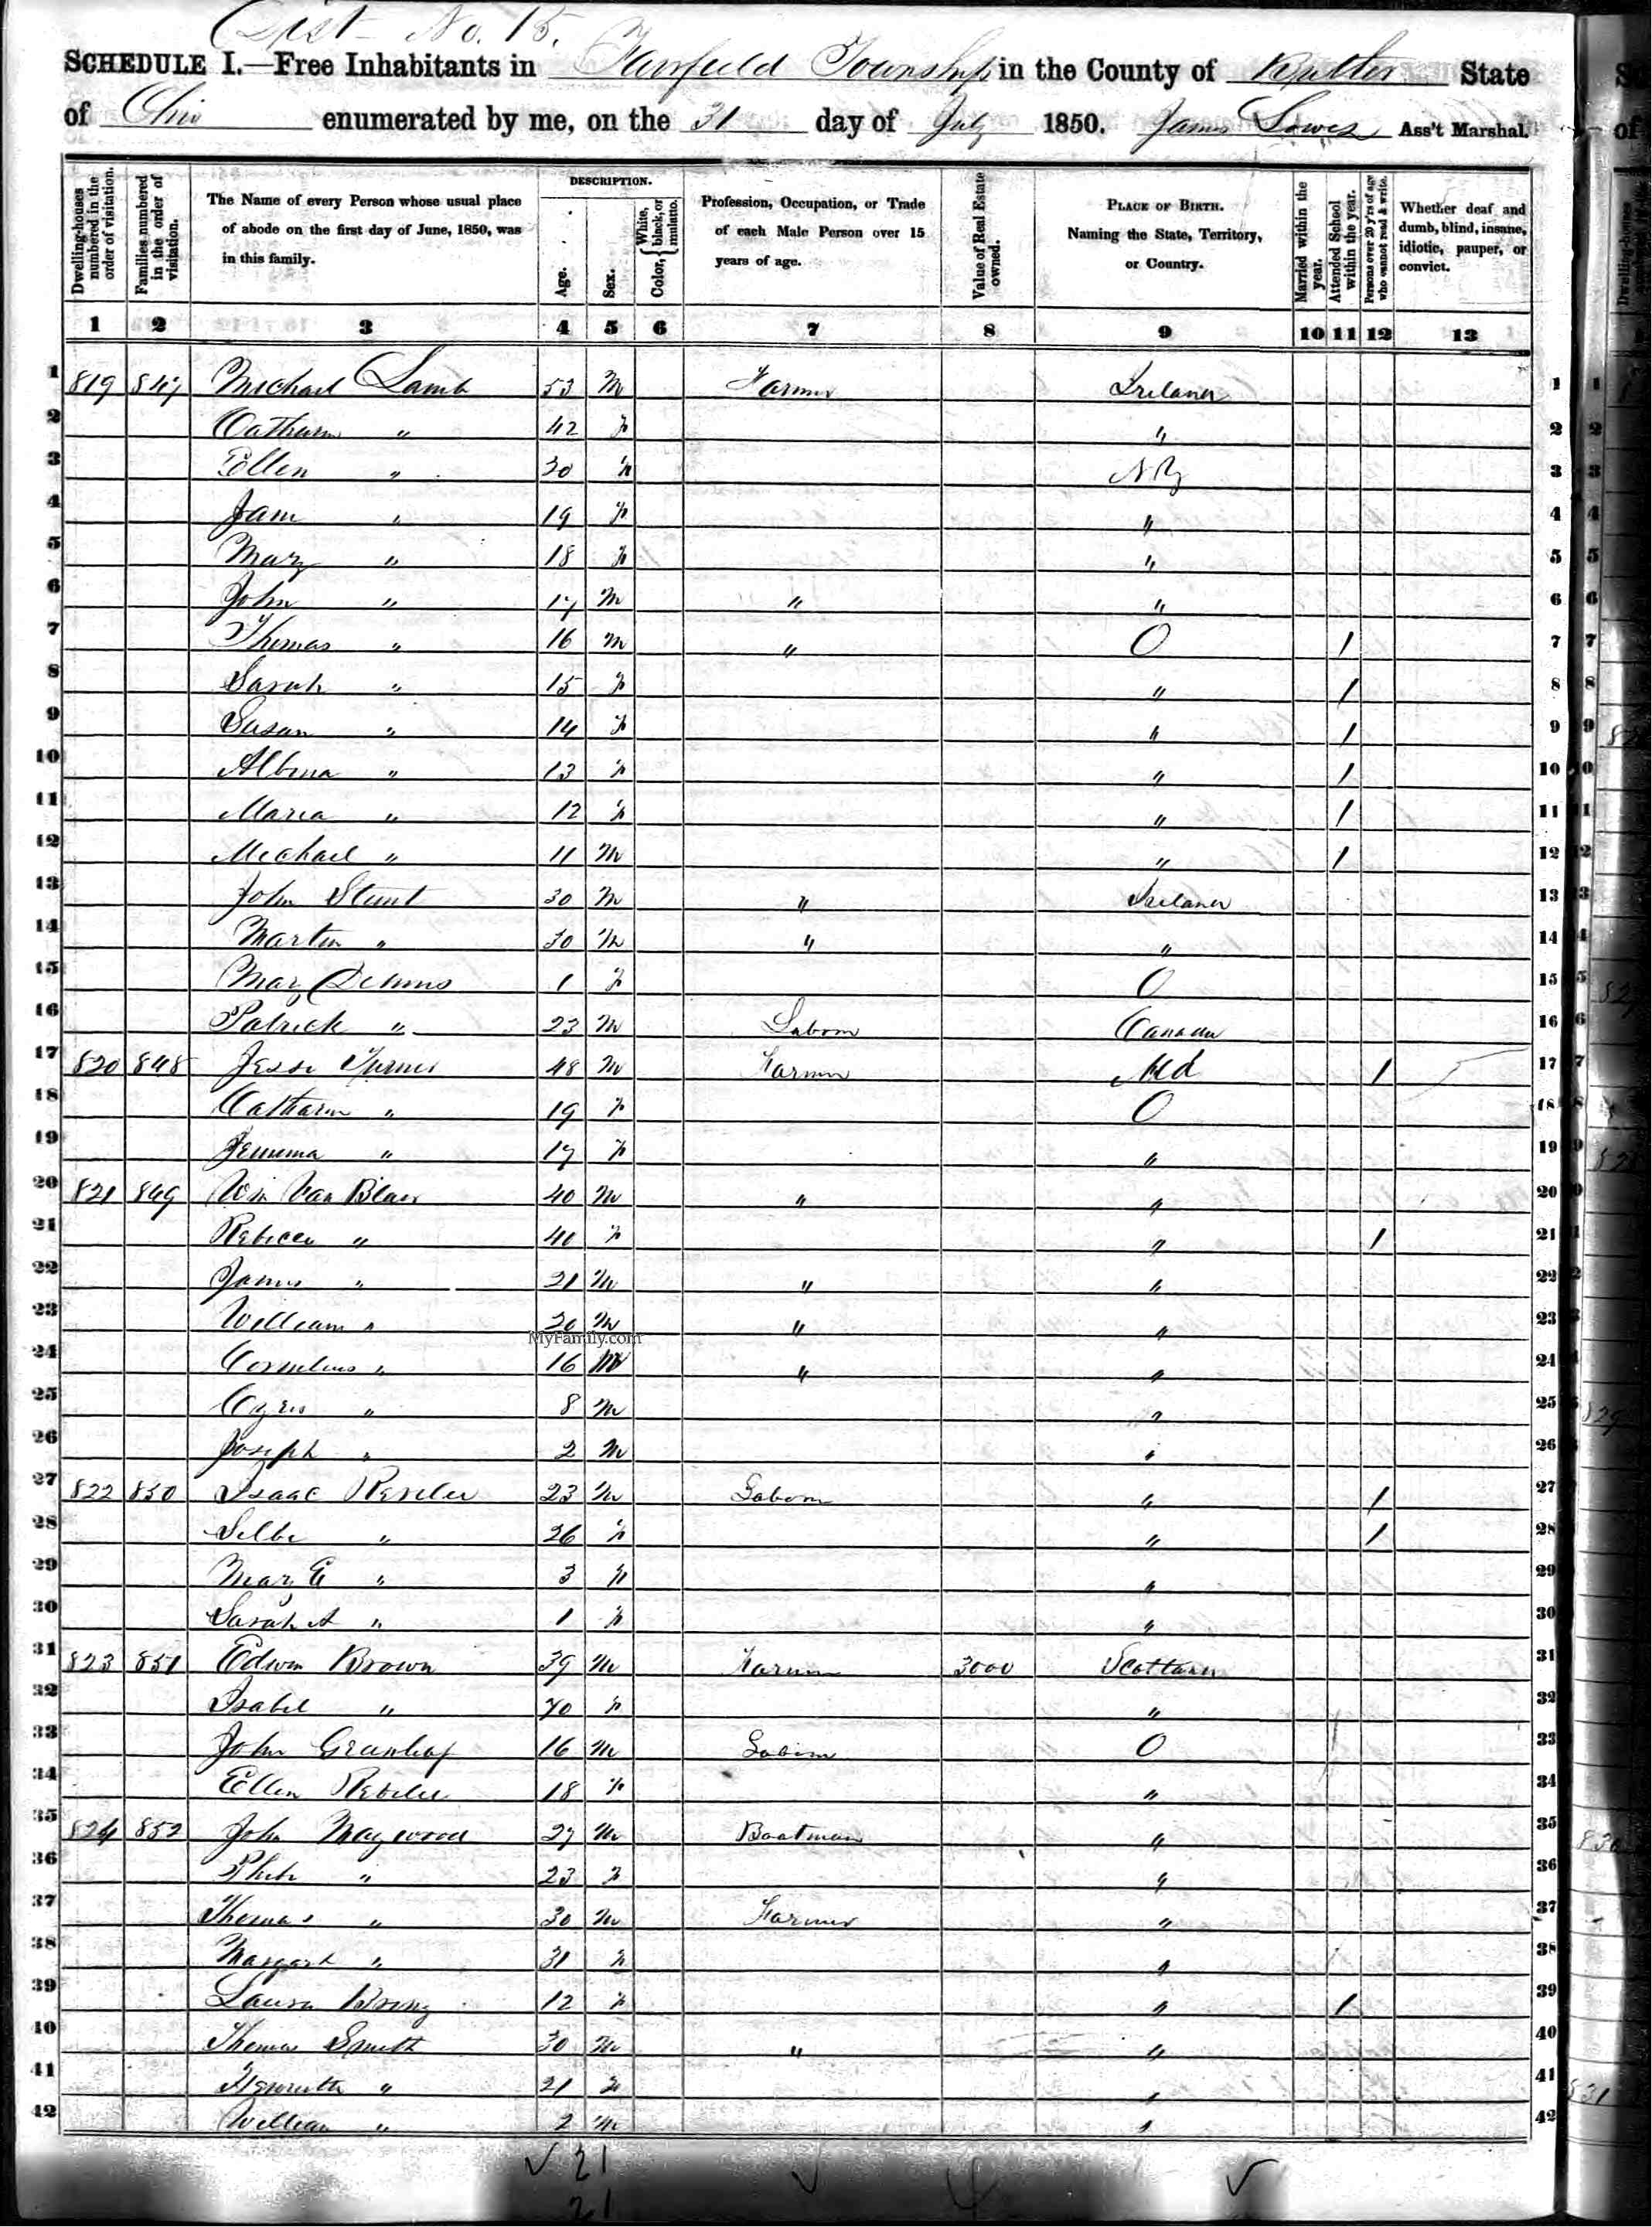 Dist No. 15.
SCHEDULE I.—Free Inhabitants in Fairfield Township in the County of Butler State
of Ohio enumerated by me, on the 31 day of July 1850. James Lowes Ass't Marshal.
Dwelling-houses numbered in the order of visitation.
Families numbered in the order of visitation.
The Name of every Person whose usual place of abode on the first day of June, 1850, was in this family.
DESCRIPTION.
Age.
Sex.
Color, { White, black, or mulatto.
Profession, Occupation, or Trade of each Male Person over 15 years of age.
Value of Real Estate owned.
PLACE OF BIRTH. Naming the State, Territory, or Country.
Married within the year.
Attended School within the year.
Persons over 20 y'rs of age who cannot read & write.
Whether deaf and dumb, blind, insane, idiotic, pauper, or convict.
1 2 3 4 5 6 7 8 9 10 11 12 13
1 819 847 Michael Lamb 53 M Farmer Ireland 1
2 Catharin " 42 f " 2
3 Ellen " 30 f N Y 3
4 Jane " 19 f " 4
5 Mary " 18 f " 5
6 John " 17 M " " 6
7 Thomas " 16 M " O 1 7
8 Sarah " 15 f " 1 8
9 Susan " 14 f " 1 9
10 Albina " 13 f " 1 10
11 Maria " 12 f " 1 11
12 Michael " 11 M " 1 12
13 John Stunt 30 M " Ireland 13
14 Martin " 30 M " " 14
15 Mary Dennis 1 f O 15
16 Patrick " 23 M Labor Canada 16
17 820 848 Jesse Turner 48 M Farmer Md 1 17
18 Catharin " 19 f O 18
19 Jemima " 17 f " 19
20 821 849 Wm Van Blair 40 M " " 20
21 Rebecca " 40 f " 1 21
22 James " 21 M " " 22
23 William " 20 M " " 23
MyFamily.com
24 Cornelius " 16 M " " 24
25 Cyrus " 8 M " 25
26 Joseph " 2 M " 26
27 822 850 Isaac 23 M Labor " 1 27
28 " 26 f " 1 28
29 Mary E " 3 f " 29
30 Sarah A " 1 f " 30
31 823 851 Edwin Brown 39 M Farmer 3000 Scotland 31
32 Isabel " 70 f " 32
33 John Greenleaf 16 M Labor O 33
34 Ellen 18 f " 34
35 824 852 John Maywood 27 M Boatman " 35
36 Phebe " 23 f " 36
37 Thomas " 30 M Farmer " 37
38 Margaret " 31 f " 38
39 Laura 12 f " 1 39
40 Thomas Smith 30 M " " 40
41 " 21 f " 41
42 William " 2 M " 42
21
21